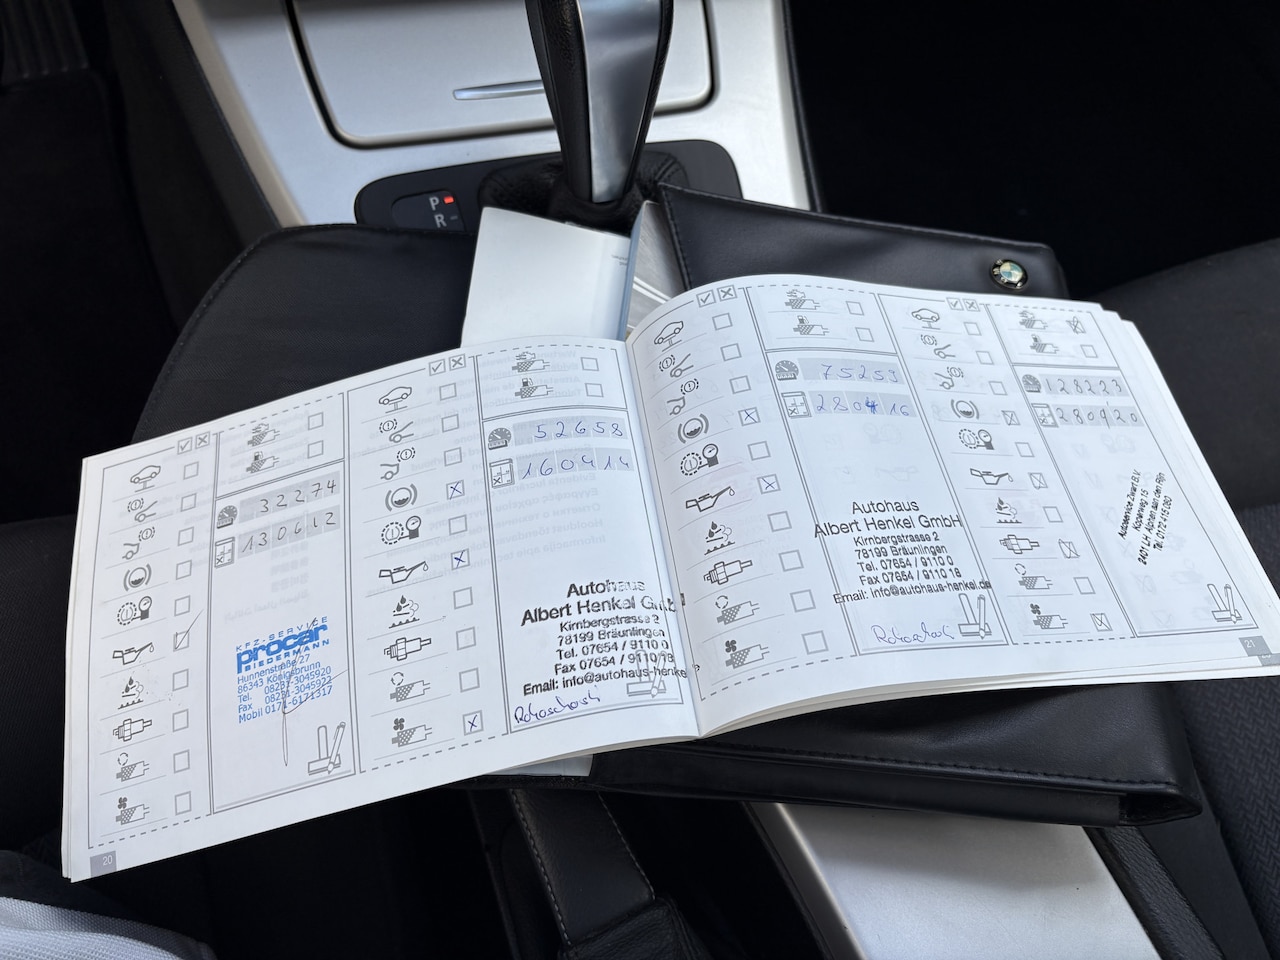 P
R
32274
130612
KFZ-SERVICE
procar
BIEDERMANN
Hunnenstraße 27
86343 Königsbrunn
Tel. 08231-3045920
Fax 08231-3045922
Mobil 0171-6171317
20
52658
160414
Autohaus
Albert Henkel GmbH
Kirnbergstrasse 2
78199 Bräunlingen
Tel. 07654 / 9110 0
Fax 07654 / 9110 18
Email: info@autohaus-henkel
75253
280416
Autohaus
Albert Henkel GmbH
Kirnbergstrasse 2
78199 Bräunlingen
Tel. 07654 / 9110 0
Fax 07654 / 9110 18
Email: info@autohaus-henkel.de
128223
280920
Autoservice Zwart B.V.
Koperweg 15
2401 LH Alphen aan den Rijn
Tel. 0172 415 060
21